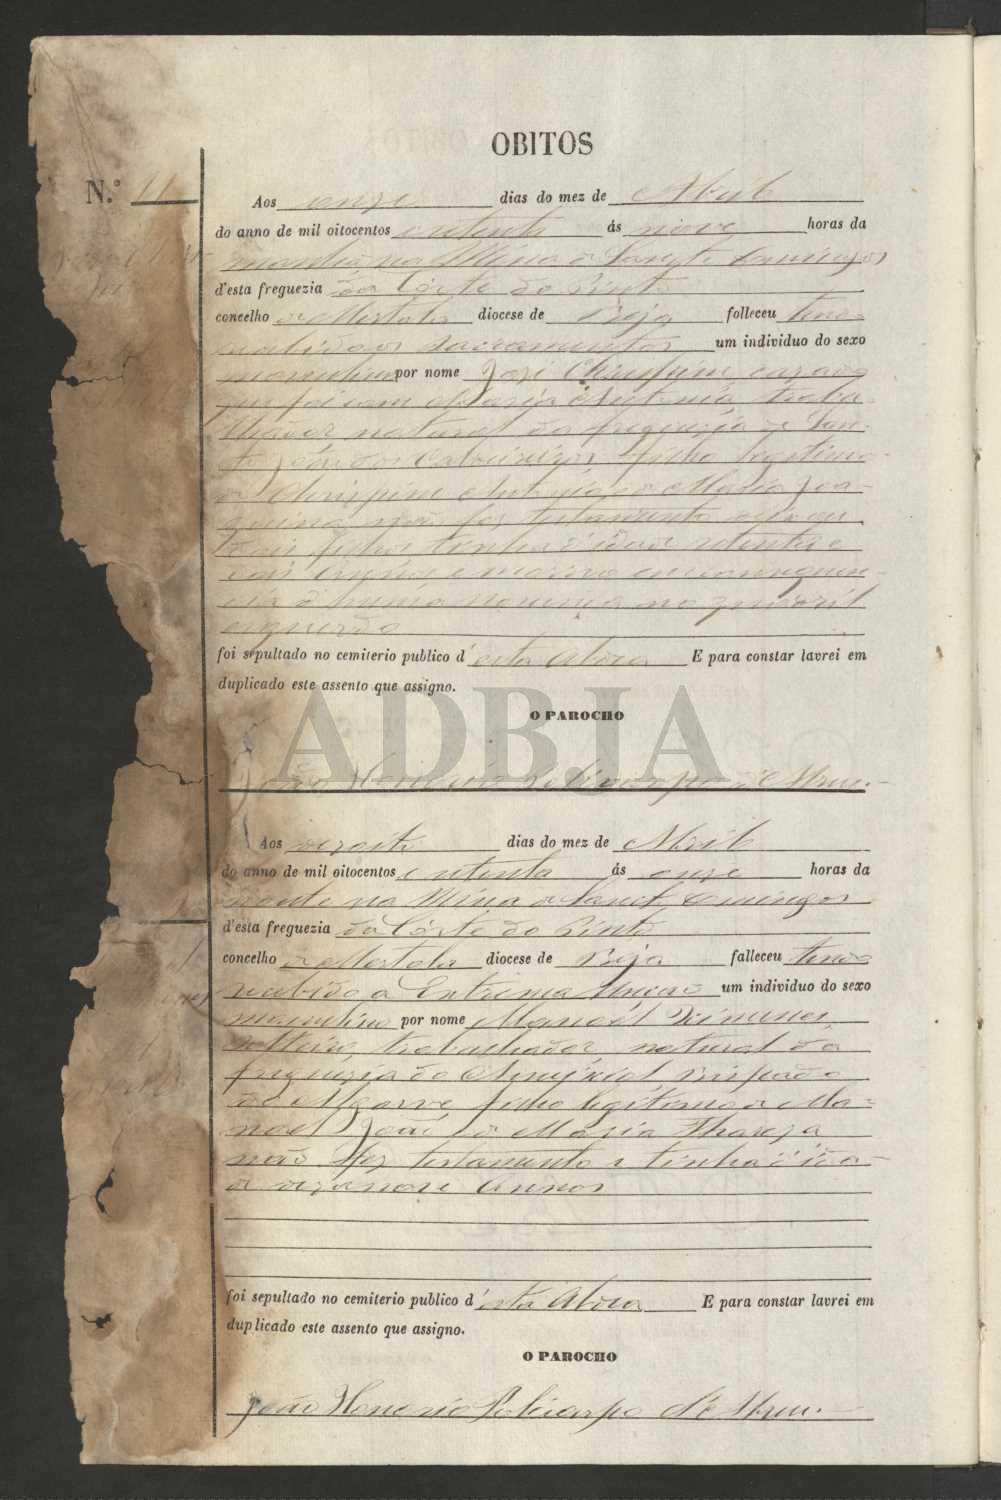 OBITOS
N.º 11
Aos onze dias do mez de Abril
do anno de mil oitocentos e oitenta ás nove horas da
manhã na Mina de Sancto Domingos
d'esta freguezia da Côrte do Pinto
concelho de Mertola diocese de Beja falleceu tendo
recebido os sacramentos um individuo do sexo
masculino por nome José Chrispim, casado
que foi com Maria Antonia, traba-
lhador natural da freguezia de San-
to João dos Caldeireiros filho legitimo
de Chrispim Antonio e de Maria Joa-
quina, não fez testamento
filhos tinha d'idade setenta e
dois annos e morreo em consequen-
cia d'huma no quadril
esquerdo
foi sepultado no cemiterio publico d'esta Aldea E para constar lavrei em
duplicado este assento que assigno.
O PAROCHO
ADBJA
João Honorio Policarpo d'Abreu.
Aos dezoito dias do mez de Abril
do anno de mil oitocentos e oitenta ás onze horas da
noute na Mina de Sancto Domingos
d'esta freguezia da Côrte do Pinto
concelho de Mertola diocese de Beja falleceu tendo
recebido a Extrema Unção um individuo do sexo
masculino por nome Manoel Ximenes,
solteiro, trabalhador natural da
freguezia do Ameixial Bispado
do Algarve filho legitimo de Ma-
noel José e de Maria Thareza
não fez testamento e tinha d'ida-
de dezanove annos
foi sepultado no cemiterio publico d'esta Aldea E para constar lavrei em
duplicado este assento que assigno.
O PAROCHO
João Honorio Policarpo d'Abreu.